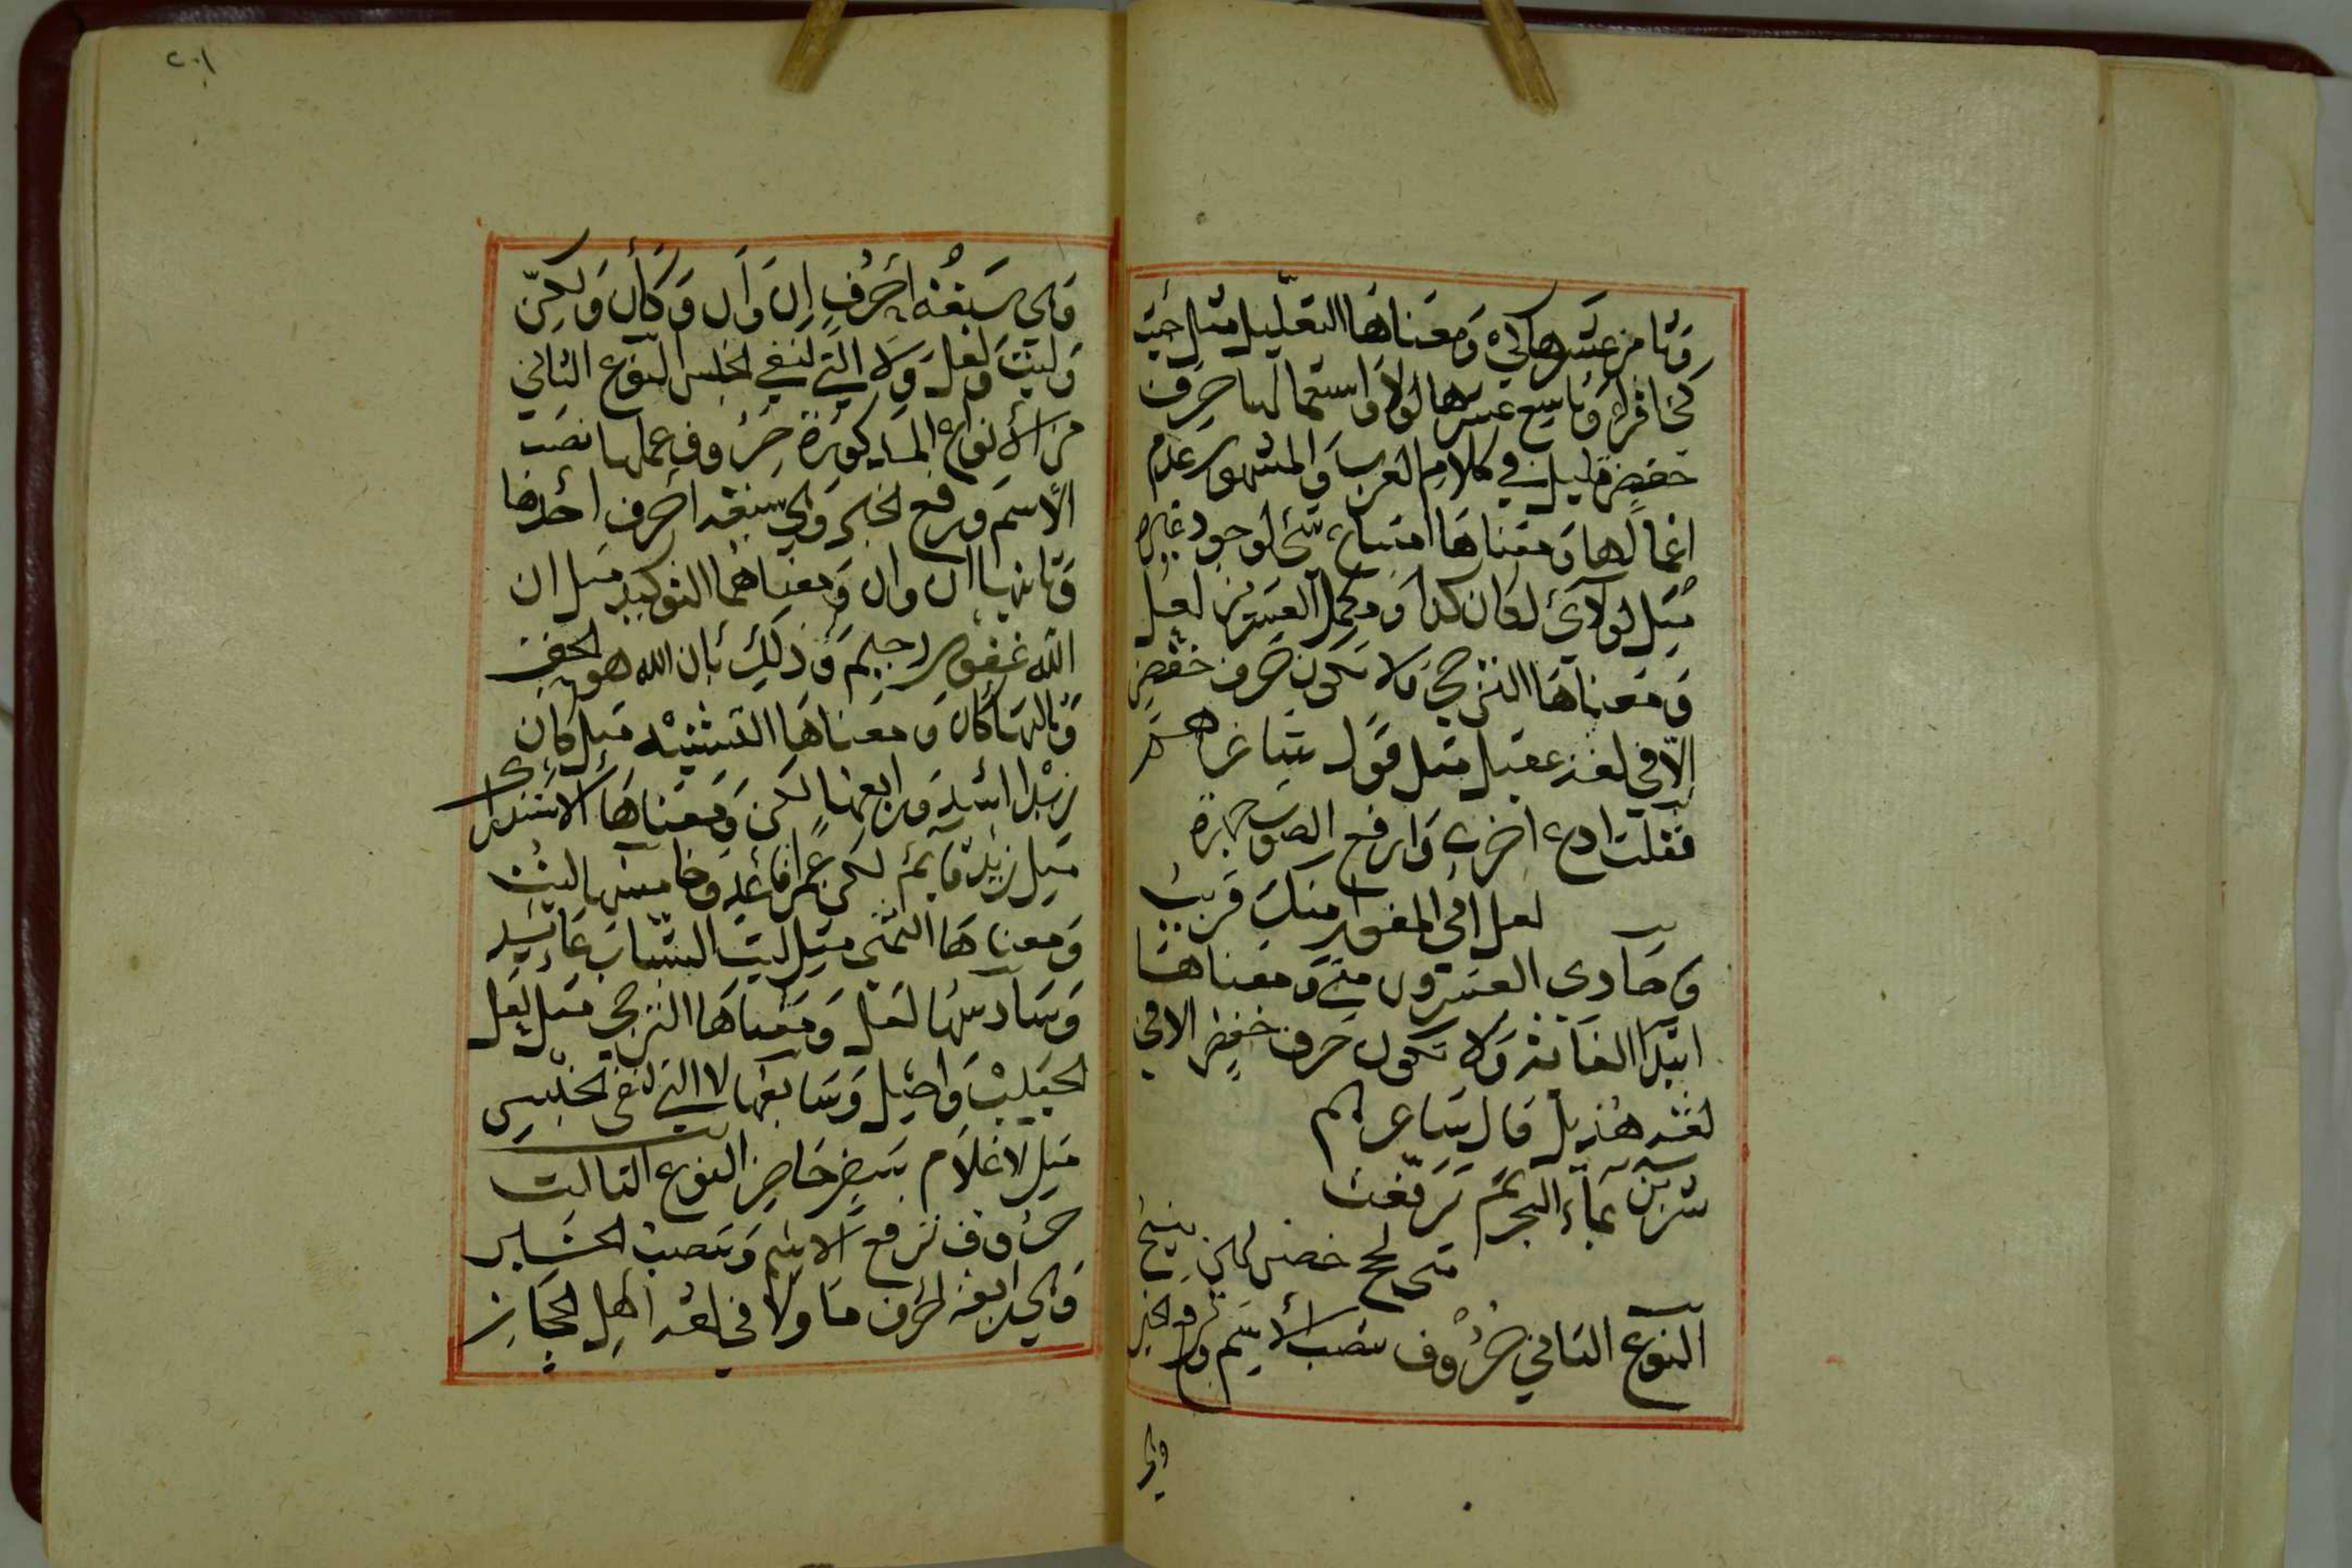 وثامن عشرها كي ومعناها التعليل مثل جيت
كي اقرا وتاسع عشرها لولا واستعمالها حرف
خفض قليل في كلام العرب والمشهور عدم
اعمالها ومعناها امتناع شي لوجود غيره
مثل لولاي لكان كذا ومكمل العشرين لعل
ومعناها الترجي ولا تكون حرف خفض
إلا في لغة عقيل مثل قول شاعرهم
فقلت ادع اخرى وارفع الصوت جهرة
لعل ابي المغوار منك قريب
وحادي العشرون متى ومعناها
ابتدا الغاية ولا تكون حرف خفض الا في
لغة هذيل قال شاعرهم
شربن بماء البحر ثم ترفعت
متى لجج خضر لهن نئيج
النوع الثاني حروف تنصب الأسم وترفع الخبر
وهي
٢٠١
وهي سبعة أحرف إن وأن وكأن ولكن
وليت ولعل ولا التي لنفي الجنس النوع الثاني
من الأنواع المذكورة حروف عملها نصب
الأسم ورفع الخبر وهي سبعة احرف أحدها
وثانيها ان وان ومعناهما التوكيد مثل ان
الله غفور رحيم وذلك بأن الله هو الحق
وثالثها كأن ومعناها التشبيه مثل كان
زيدا اسد ورابعها لكن ومعناها الاستدراك
مثل زيد قايم لكن عمرا قاعد وخامسها ليت
ومعناها التمني مثل ليت الشباب عائد
وسادسها لعل ومعناها الترجي مثل لعل
الحبيب واصل وسابعها لا التي لنفي الجنس
مثل لا غلام سفر حاضر النوع الثالث
حروف ترفع الاسم وتنصب الخبر
وهي اربعة احرف ما ولا في لغة اهل الحجاز